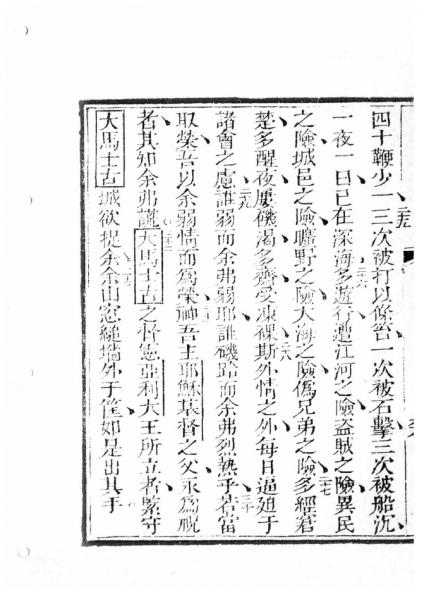 四十鞭少一三次被打以條笞一次被石擊三次被船沉
二五
一夜一日已在深海多遊行遭江河之險盜賊之險異民
二六
之險城邑之險曠野之險大海之險偽兄弟之險多經窘
二七
楚多醒夜屢磯渴多齋受凍裸斯外情之外每日逼迫于
二八
諸會之慮誰弱而余弗弱耶誰磯路而余弗烈熱乎若當
二九
三十
取榮吾以余弱情而爲榮神吾主耶穌基督之父永爲祝
三一
者其知余弗謊大馬士古之督憲亞利大王所立者緊守
三二
大馬士古城欲捉余余由窓縋墙外于筐如是出其手